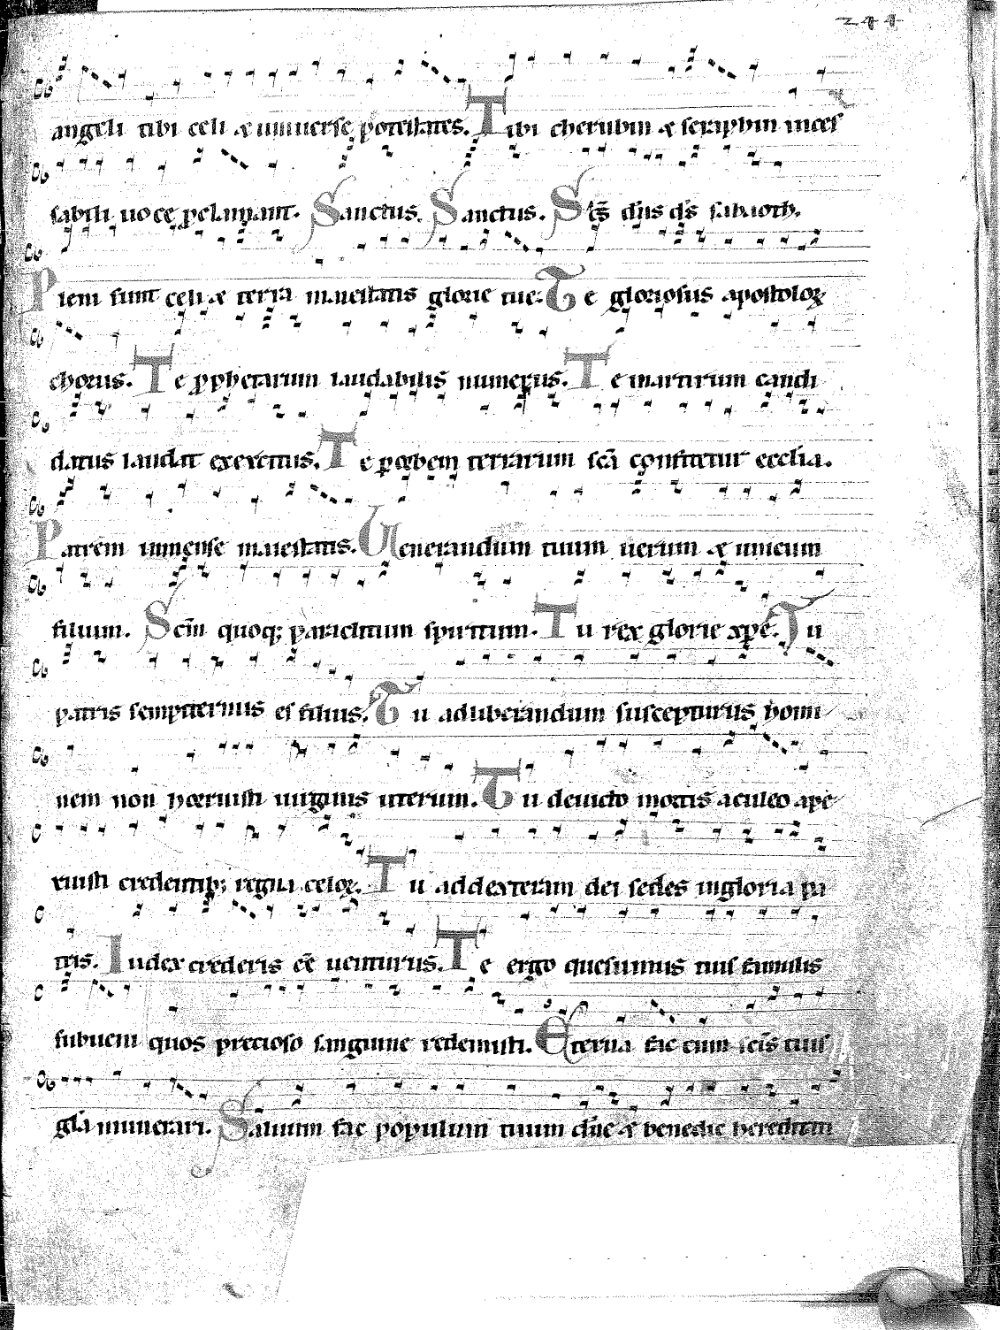 244
angeli tibi celi & uniuerse potestates. Tibi cherubin & seraphin inces
sabili uoce proclamant. Sanctus. Sanctus. Sc̄s dn̄s ds̄ sabaoth.
Pleni sunt celi & terra maiestatis glorie tue. Te gloriosus apostoloꝝ
chorus. Te prophetarum laudabilis numerus. Te martirum candi
datus laudat exercitus. Te ꝑ orbem terrarum sc̄a confitetur ecclesia.
Patrem inmense maiestatis. Uenerandum tuum uerum & unicum
filium. Sc̄m quoqꝫ paraclitum spiritum. Tu rex glorie xp̄e. Tu
patris sempiternus es filius. Tu ad liberandum suscepturus homi
nem non horruisti uirginis uterum. Tu deuicto mortis aculeo ape
ruisti credentibꝫ regna celoꝝ. Tu ad dexteram dei sedes in gloria pa
tris. Iudex crederis eē uenturus. Te ergo quesumus tuis famulis
subueni quos precioso sanguine redemisti. Eterna fac cum scīs tuis
glā munerari. Saluum fac populum tuum dn̄e & benedic hereditati